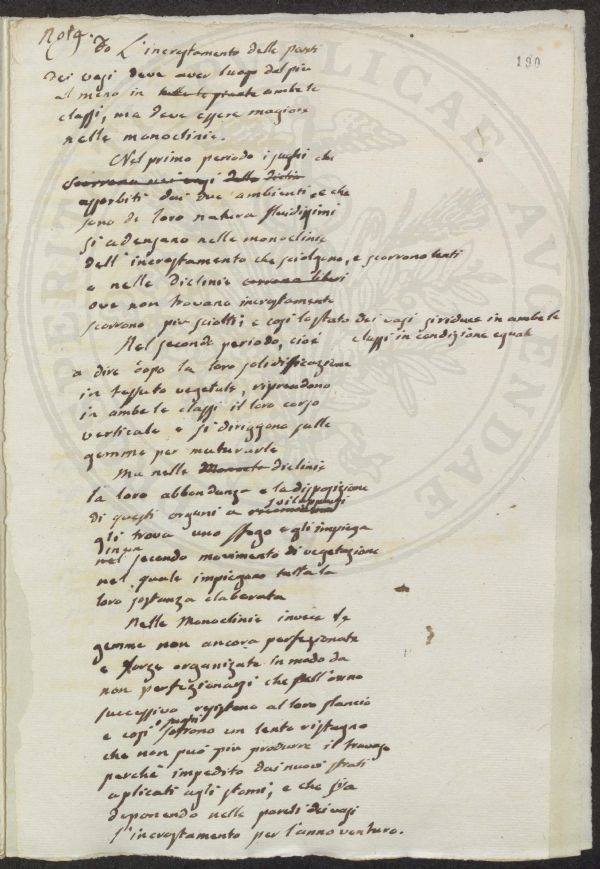 Nota.
190
Do L'incrostamento delle pareti
dei vasi deve aver luogo dal piu
al meno in tutte le piante ambe le
classi, ma deve essere magiore
nelle monoclinie.
Nel primo periodo i sughi che
scorrono nei vasi delle diclin
assorbiti dai due ambienti, e che
sono di loro natura fluidissimi
si adensano nelle monoclinie
dell'incrostamento che sciolgono, e scorrono lenti
e nelle diclinie corrono liberi
ove non trovano incrostamento
scorrono piu sciolti; e cosi lo stato dei vasi si riduce in ambe le
classi in condizione eguale
Nel secondo periodo, cioè
a dire dopo la loro solidificazione
in tessuto vegetale, riprendono
in ambe le classi il loro corso
verticale e si diriggono sulle
gemme per maturarle
Ma nelle diclinie
la loro abbondanza e la disposizione
di questi organi a svilupparsi
gli trova uno sfogo e gli impiega
in un
nel secondo movimento di vegetazione
nel quale impiegano tutta la
loro sostanza elaborata
Nelle Monoclinie invece le
gemme non ancora perfezionate
e forze organizate in modo da
non perfezionarsi che sull'anno
successivo resistono al loro slancio
e cosi sofrono un lento ristagno
che non può piu produrre il travaso
perchè impedito dai nuovi strati
aplicati agli stami, e che si va
deponendo nelle pareti dei vasi
l'incrostamento per l'anno venturo.